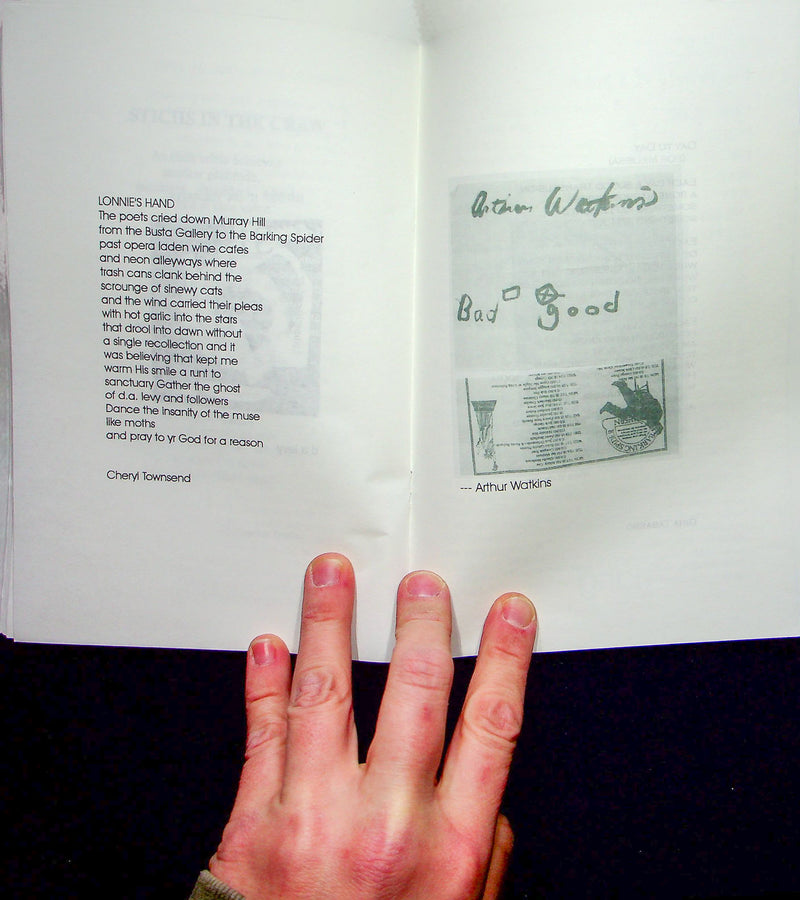 LONNIE'S HAND
The poets cried down Murray Hill
from the Busta Gallery to the Barking Spider
past opera laden wine cafes
and neon alleyways where
trash cans clank behind the
scrounge of sinewy cats
and the wind carried their pleas
with hot garlic into the stars
that drool into dawn without
a single recollection and it
was believing that kept me
warm His smile a runt to
sanctuary Gather the ghost
of d.a. levy and followers
Dance the insanity of the muse
like moths
and pray to yr God for a reason
Cheryl Townsend
Arthur Watkins
Bad good
--- Arthur Watkins